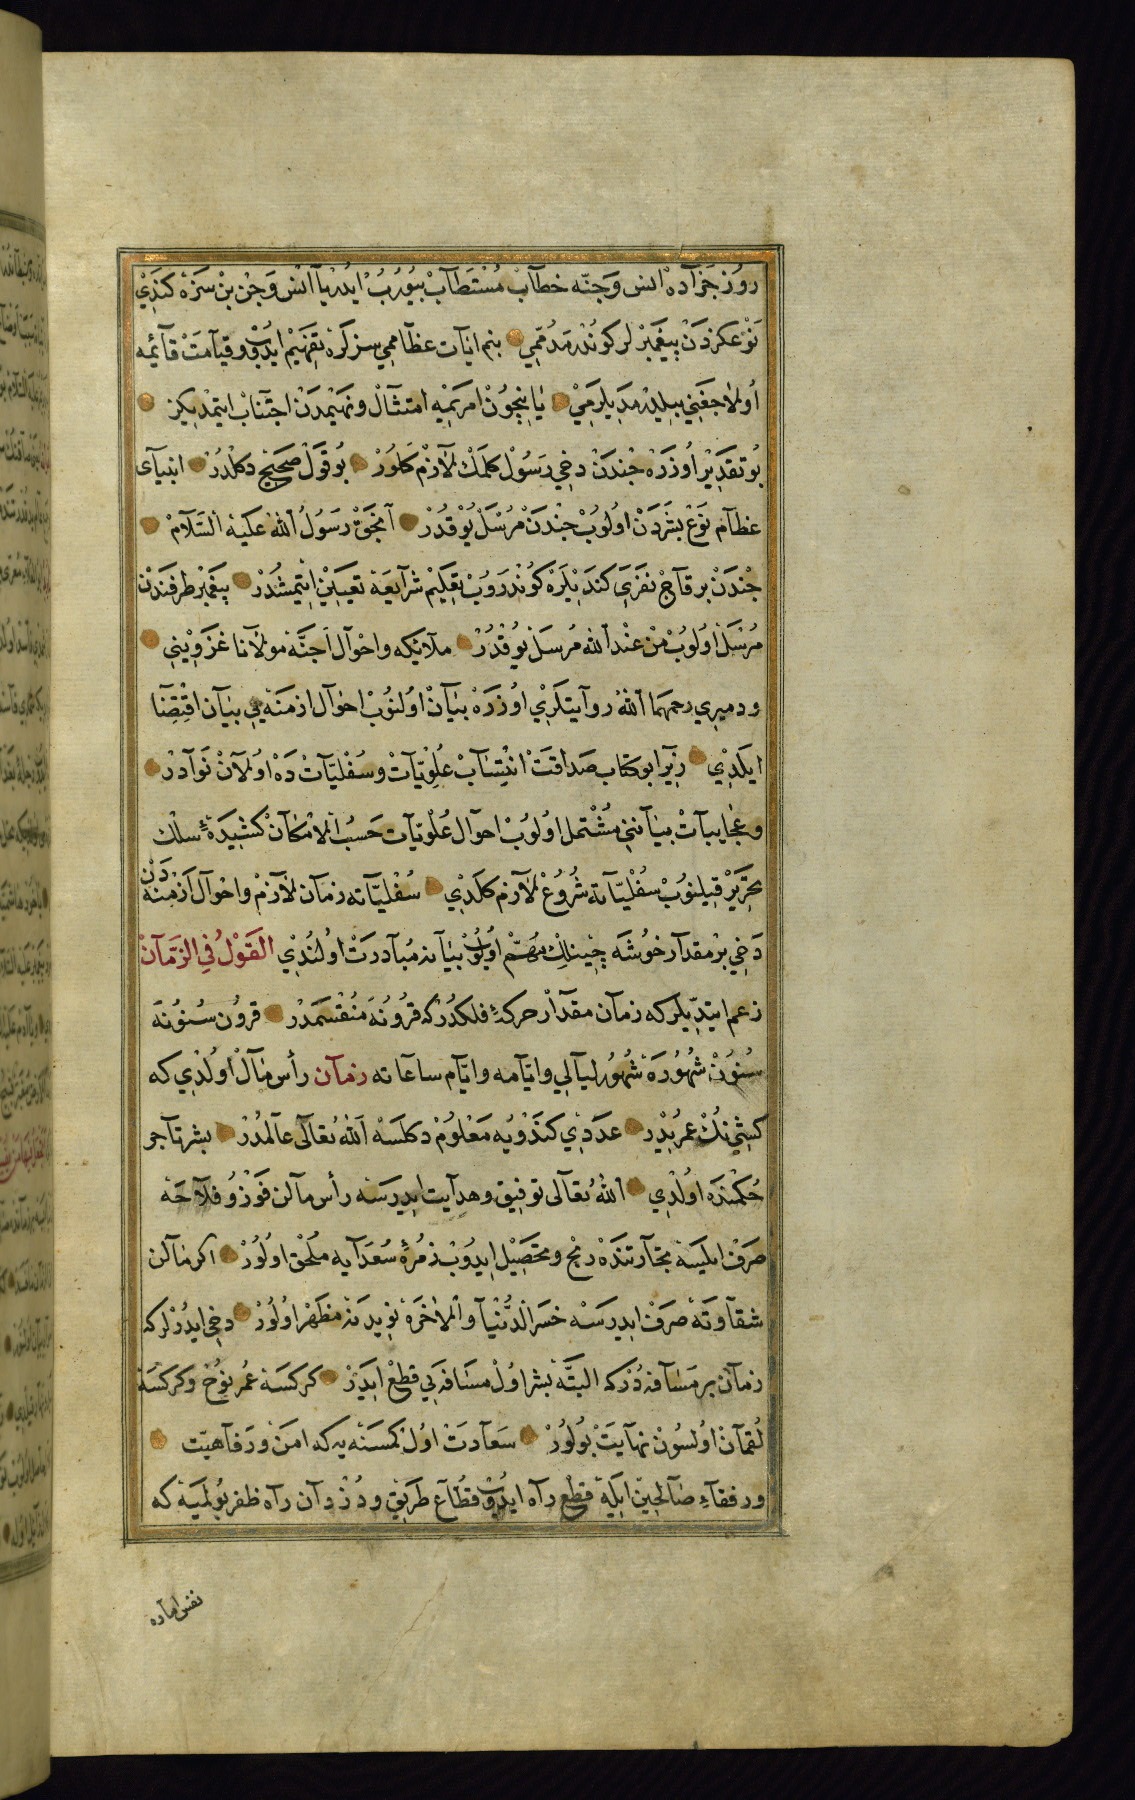 روز جزاده انس وجنّه خطاب مستطاب بيورب ايدر يا انس وجن بن سزه كندي
نوعكزدن پيغمبرلر كوندرمدممي بنم ايات عظاممي سزلره تفهيم ايدوب وقيامت قائمه
اولاجغني بيلدرمديلرمي يا نيچون امرميه امتثال ونهيمدن اجتناب ايتمديكز
بو تقدير اوزره جندن دخي رسول كلمك لازم كلور بو قول صحيح دكلدر انبياى
عظام نوع بشردن اولوب جندن مرسل يوقدر آنجق رسول الله عليه السلام
جندن برقاج نفرى كنديلره كوندروب تعليم شرايعه تعيين ايتمشدر پيغمبر طرفندن
مرسل اولوب من عند الله مرسل يوقدر ملائكه واحوال اجنّه مولانا غزويني
ودميري رحمهما الله روايتلري اوزره بيان اولنوب احوال ازمنه يي بيان اقتضا
ايلدي زيرا بو كتاب صداقت انتساب علويات وسفليات ده اولان نوادر
وعجايبات بياننى مشتمل اولوب احوال علويات حسب الامكان كشيدهٔ سلك
تحرير قيلنوب سفلياته شروع لازم كلدي سفلياته زمان لازم واحوال ازمنه دن
دخي بر مقدار خوشه چينلك مهمّ اولوب بيانه مبادرت اولندي القول في الزمان
زعم ايتديلر كه زمان مقدار حركهٔ فلكدر كه قرونه منقسمدر قرون سنونه
سنون شهوره شهور ليالي وايامه وايام ساعاته زمان رأس مال اولدي كه
كشينك عمريدر عددي كندويه معلوم دكلسه الله تعالى عالمدر بشر تاجر
حكمنده اولدي الله تعالى توفيق وهدايت ايدرسه رأس مالن فوز وفلاحه
صرف ايليسه تجارتنده ربح وتحصيل ايدوب زمرهٔ سعدايه ملحق اولور اكر مالن
شقاوته صرف ايدرسه خسر الدنيا والاخره نويدنه مظهر اولور دخي ايدرلر كه
زمان بر مسافه در كه البته بشر اول مسافه يي قطع ايدر كركسه عمر نوح وكركسه
لقمان اولسون نهايت بولور سعادت اول كمسنه يه كه امن ورفاهيّت
ورفقاء صالحين ايله قطع راه ايدوب قطاع طريق ودزدان راه ظفر بولميه كه
نفس اماره